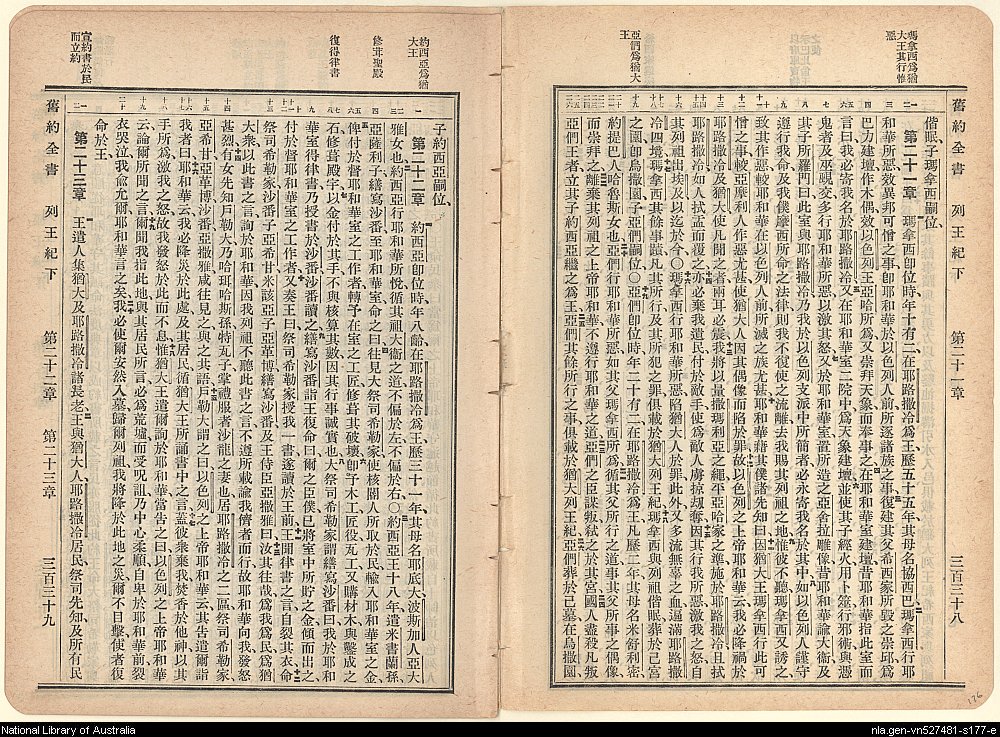 瑪拿西為猶
大王其行惟
惡
亞們為猶大
王
舊約全書 列王紀下 第二十一章 三百三十八
偕眠、子瑪拿西嗣位、
第二十一章 瑪拿西即位時年十有二、在耶路撒冷為王、歷五十五年、其母名協西巴、瑪拿西行耶
和華所惡、效異邦可憎之事、即耶和華於以色列人前所逐諸族之事、復建其父希西家所毀之崇邱、為
巴力建壇、作木偶、效以色列王亞哈所為、又崇拜天象而奉事之、在耶和華室建壇、昔耶和華指此室而
言曰、我必寄我名於耶路撒冷、又在耶和華室二院中、為天象建壇、並使其子經火、用卜筮、行邪術、與憑
鬼者及巫覡交、多行耶和華所惡、以激其怒、又於耶和華室、置所造之亞舍拉雕像、昔耶和華諭大衛及
其子所羅門曰、此室與耶路撒冷、乃我於以色列支派中所簡者、必永寄我名於其中、如以色列人謹守
遵行我命、及我僕摩西所命之法律、則我不復使之流離、去我賜其列祖之地、惟彼不聽、瑪拿西又誘之、
致其作惡、較耶和華在以色列人前所滅之族尤甚、耶和華藉其僕諸先知曰、因猶大王瑪拿西行此可
憎之事、較亞摩利人作惡尤甚、使猶大人因其偶像而陷於罪、故以色列之上帝耶和華云、我必降禍於
耶路撒冷及猶大、使凡聞之者兩耳必震、我將以量撒瑪利亞之繩、平亞哈家之準、施於耶路撒冷、且拭
耶路撒冷、如人拭盂而覆之、亦必棄我遺民、付於敵手、使為敵人虜掠刦奪、因其行我所惡、激我之怒、自
其列祖出埃及以迄於今、〇瑪拿西行耶和華所惡、陷猶大人於罪、此外又多流無辜之血、遍滿耶路撒
冷四境、瑪拿西其餘事蹟、凡其所行、及其所犯之罪、俱載於猶大列王紀、瑪拿西與列祖偕眠、葬於己宮
之園、即烏撒園、子亞們嗣位、〇亞們即位時、年二十有二、在耶路撒冷為王、凡歷二年、其母名米舒利密、
約提巴人哈魯斯女也、亞們行耶和華所惡、如其父瑪拿西所為、循其父所行、奉其父所事之偶像、
而崇拜之、離棄其列祖之上帝耶和華、不遵行耶和華之道、亞們之臣謀叛、弒之於其宮、國人盡殺凡叛
亞們王者、立其子約西亞繼之為王、亞們其餘所行之事、俱載於猶大列王紀、亞們葬於己墓、在烏撒園、
176
約西亞為猶
大王
修葺聖殿
復得律書
宣約書於民
而立約
子約西亞嗣位、
第二十二章 約西亞即位時、年八齡、在耶路撒冷為王、歷三十一年、其母名耶底大、波斯加人亞大
雅女也、約西亞行耶和華所悅、循其祖大衛之道、不偏於左、不偏於右、〇約西亞王十八年、遣米書蘭孫
亞薩利子繕寫沙番、至耶和華室、命之曰、往見大祭司希勒家、使核閽人所取於民、輸入耶和華室之金、
俾付於督耶和華室之工作者、轉予在室之工匠、修葺其破壞、即予木工匠役瓦工、又購材木、與鑿成之
石、修葺殿宇、以金付於其手、不與核算其數、因其行事誠實也、大祭司希勒家謂繕寫沙番曰、我於耶和
華室得律書、乃授書於沙番、沙番讀之、繕寫沙番詣王復命曰、爾之臣僕已將室中所貯之金傾而出之、
付於督耶和華室之工作者、又奏王曰、祭司希勒家授我一書、遂讀於王前、王聞律書之言、自裂其衣、命
祭司希勒家、沙番子亞希甘、米該亞子亞革博、繕寫沙番、及王侍臣亞撒雅曰、汝其往哉、為我為民為猶
大衆、以此書之言、詢於耶和華、因我列祖不聽此書之言、不遵所載諭我儕者而行、故耶和華向我發怒
甚烈、有女先知戶勒大、乃哈珥哈斯孫、特瓦子、掌禮服者沙龍之妻也、居耶路撒冷之二區、祭司希勒家、
亞希甘、亞革博、沙番、亞撒雅、咸往見之、與之共語、戶勒大謂之曰、以色列之上帝耶和華云、其告遣爾詣
我者曰、耶和華云、我必降災於此處、及其居民、循猶大王所誦書中之言、蓋彼衆棄我、焚香於他神、以其
手所為激我之怒、故我發怒於此而不息、惟猶大王遣爾詢於耶和華、當告之曰、以色列之上帝耶和華
云、論爾所聞之言、爾聞我指此地與其居民所言、必為荒墟而受呪詛、乃中心柔順、自卑於耶和華前、裂
衣哭泣、我俞允爾、耶和華言之矣、我必使爾安然入墓、歸爾列祖、我將降於此地之災、爾不目擊、使者復
命於王、
第二十三章 王遣人集猶大及耶路撒冷諸長老、王與猶大人、耶路撒冷居民、祭司先知、及所有民
舊約全書 列王紀下 第二十二章 第二十三章 三百三十九
National Library of Australia
nla.gen-vn527481-s177-e